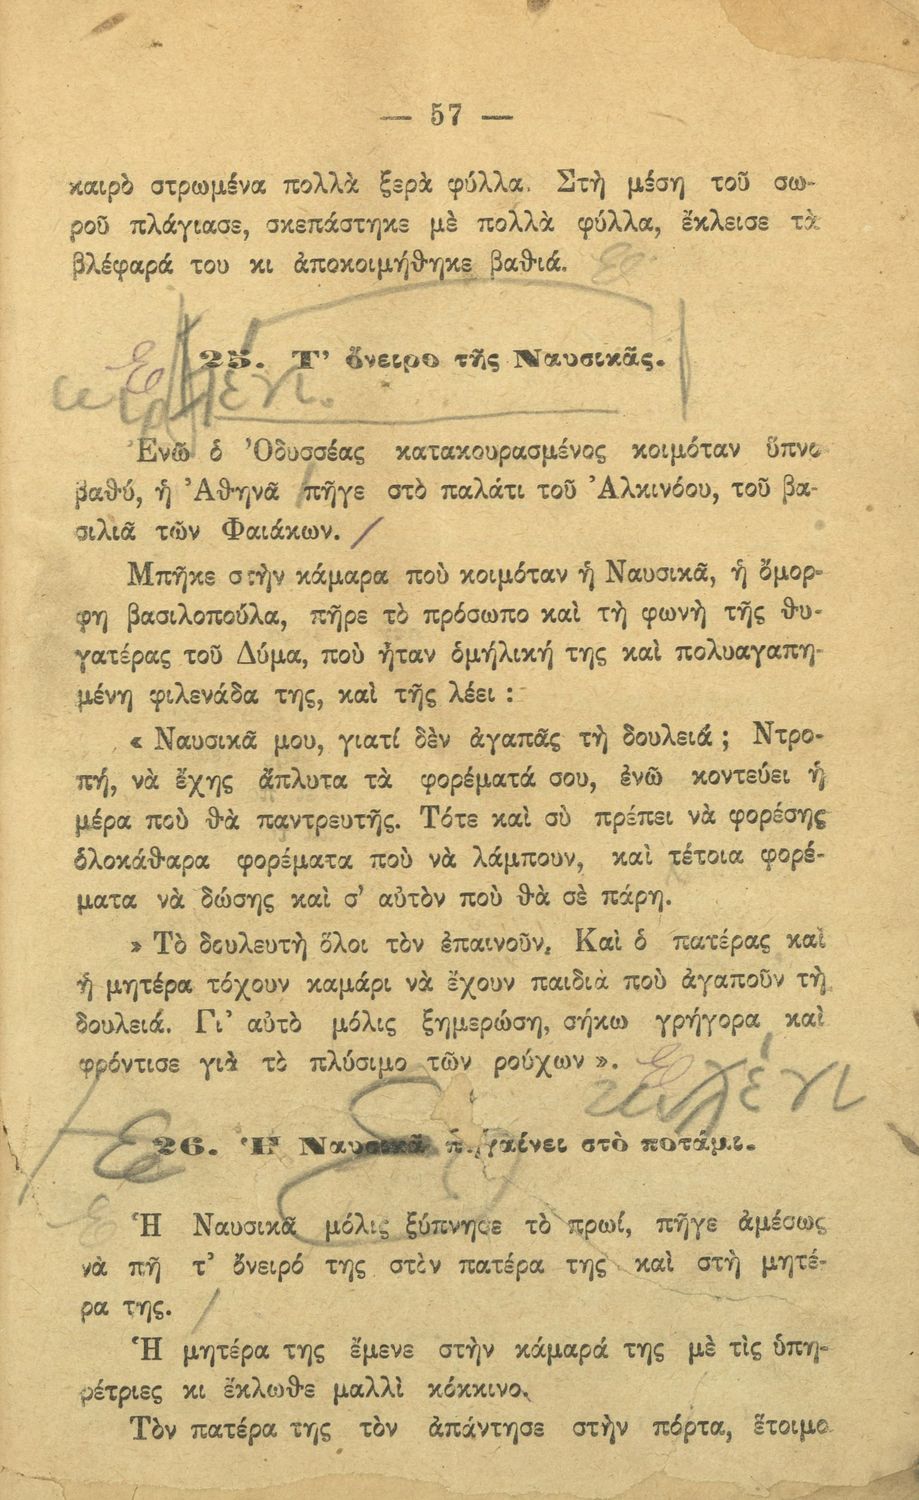 — 57 —
καιρὸ στρωμένα πολλὰ ξερὰ φύλλα. Στὴ μέση τοῦ σω-
ροῦ πλάγιασε, σκεπάστηκε μὲ πολλὰ φύλλα, ἔκλεισε τὰ
βλέφαρά του κι ἀποκοιμήθηκε βαθιά.
25. Τ' ὄνειρο τῆς Ναυσικᾶς.
Ἐνῶ ὁ Ὀδυσσέας κατακουρασμένος κοιμόταν ὕπνο
βαθύ, ἡ Ἀθηνᾶ πῆγε στὸ παλάτι τοῦ Ἀλκινόου, τοῦ βα-
σιλιᾶ τῶν Φαιάκων.
Μπῆκε στὴν κάμαρα ποὺ κοιμόταν ἡ Ναυσικᾶ, ἡ ὄμορ-
φη βασιλοπούλα, πῆρε τὸ πρόσωπο καὶ τὴ φωνὴ τῆς θυ-
γατέρας τοῦ Δύμα, ποὺ ἦταν ὁμήλική της καὶ πολυαγαπη-
μένη φιλενάδα της, καὶ τῆς λέει :
« Ναυσικᾶ μου, γιατί δὲν ἀγαπᾶς τὴ δουλειά ; Ντρο-
πή, νὰ ἔχης ἄπλυτα τὰ φορέματά σου, ἐνῶ κοντεύει ἡ
μέρα ποὺ θὰ παντρευτῆς. Τότε καὶ σὺ πρέπει νὰ φορέσης
ὁλοκάθαρα φορέματα ποὺ νὰ λάμπουν, καὶ τέτοια φορέ-
ματα νὰ δώσης καὶ σ' αὐτὸν ποὺ θὰ σὲ πάρη.
» Τὸ δουλευτὴ ὅλοι τὸν ἐπαινοῦν. Καὶ ὁ πατέρας καὶ
ἡ μητέρα τόχουν καμάρι νὰ ἔχουν παιδιὰ ποὺ ἀγαποῦν τὴ
δουλειά. Γι' αὐτὸ μόλις ξημερώση, σήκω γρήγορα καὶ
φρόντισε γιὰ τὸ πλύσιμο τῶν ρούχων ».
26. Ἡ Ναυσικᾶ πηγαίνει στὸ ποτάμι.
Ἡ Ναυσικᾶ μόλις ξύπνησε τὸ πρωί, πῆγε ἀμέσως
νὰ πῆ τ' ὄνειρό της στὸν πατέρα της καὶ στὴ μητέ-
ρα της.
Ἡ μητέρα της ἔμενε στὴν κάμαρά της μὲ τὶς ὑπη-
ρέτριες κι ἔκλωθε μαλλὶ κόκκινο.
Τὸν πατέρα της τὸν ἀπάντησε στὴν πόρτα, ἕτοιμο